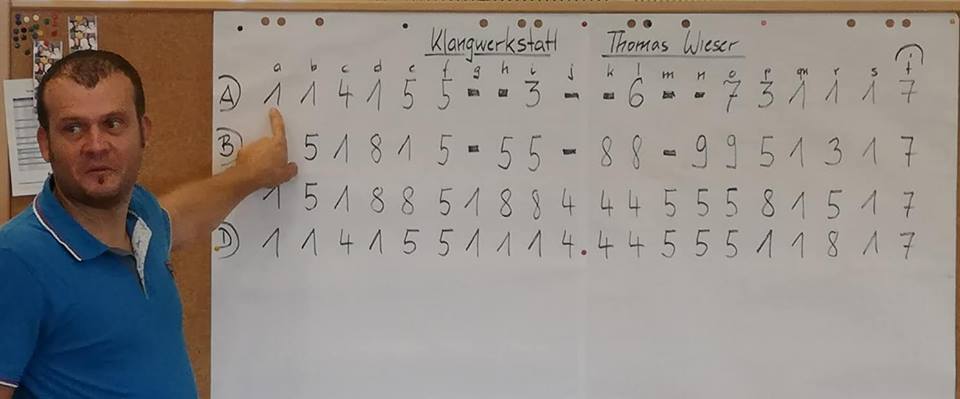 Klangwerkstatt Thomas Wieser
a b c d e f g h i j k l m n o p qu r s t
A 1 1 4 1 5 5 - - 3 - - 6 - - 7 3 1 1 1 7
B 5 1 8 1 5 - 5 5 - 8 8 - 9 9 5 1 3 1 7
1 5 1 8 8 5 1 8 8 4 4 4 5 5 5 8 1 5 1 7
D 1 1 4 1 5 5 1 1 1 4 4 4 5 5 5 1 1 8 1 7